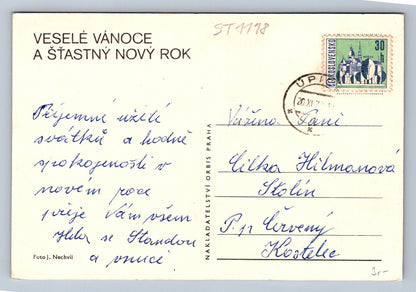 VESELÉ VÁNOCE
A ŠŤASTNÝ NOVÝ ROK
ST1198
30
h
ČESKOSLOVENSKO
ÚPI
20.XI.7
Příjemné užití
svátků a hodně
spokojenosti v
novém roce
přeje Vám všem
Hela se Standou
a vnuci
Foto J. Nechvíl
NAKLADATELSTVÍ ORBIS PRAHA
Vážená Paní
Cilka Hilmanová
Stolín
P. p. Červený
Kostelec
3,-